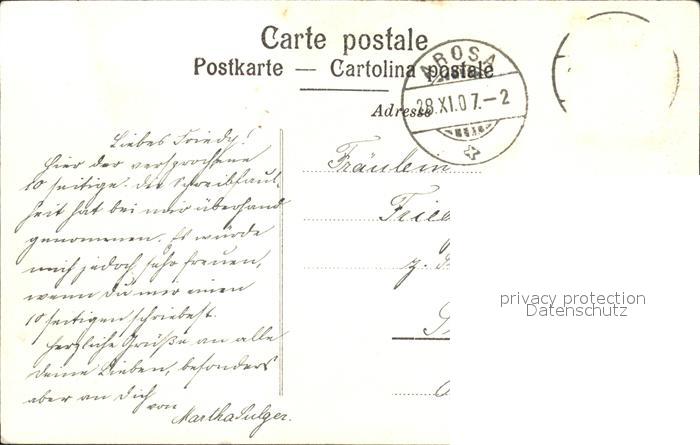 Carte postale
Postkarte — Cartolina postale
AROSA
28.XI.07.–2
Adresse
Liebes Friedy!
Hier der versprochene
10 seitige. Die Schreibfaul-
heit hat bei mir überhand
genommen. Es würde
mich jedoch sehr freuen,
wenn du mir einen
10 seitigen schriebest.
Herzliche Grüße an alle
deine Lieben, besonders
aber an dich
von
Martha Sulger.
Fräulein
Frie
z.
privacy protection
Datenschutz